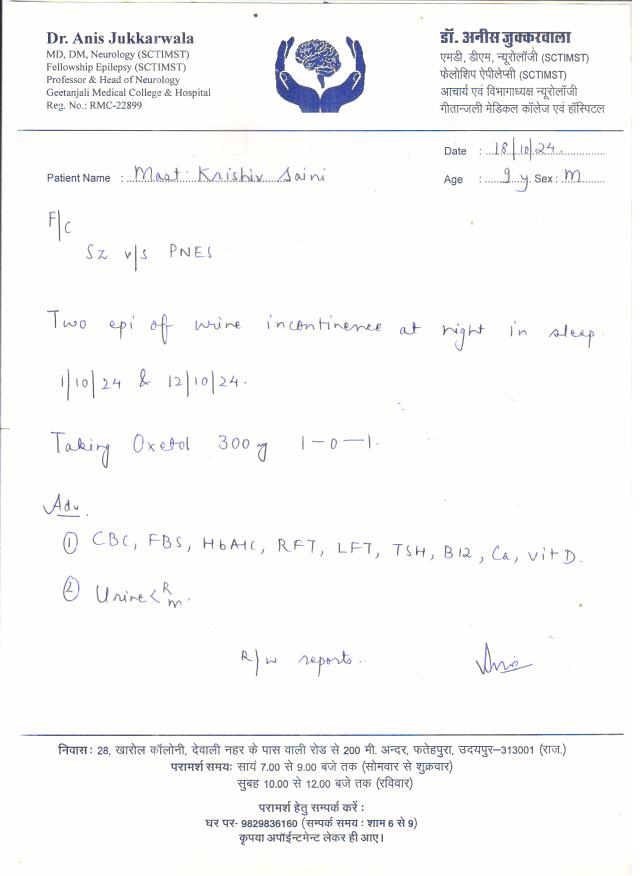 Dr. Anis Jukkarwala
MD, DM, Neurology (SCTIMST)
Fellowship Epilepsy (SCTIMST)
Professor & Head of Neurology
Geetanjali Medical College & Hospital
Reg. No.: RMC-22899
डॉ. अनीस जुक्करवाला
एमडी, डीएम, न्यूरोलॉजी (SCTIMST)
फेलोशिप ऐपीलेप्सी (SCTIMST)
आचार्य एवं विभागाध्यक्ष न्यूरोलॉजी
गीतान्जली मेडिकल कॉलेज एवं हॉस्पिटल
Date : 18/10/24.
Patient Name : Mast. Krishiv Saini
Age : 9 y Sex : M
F/C
Sz v/s PNES
Two epi of urine incontinence at night in sleep.
1/10/24 & 12/10/24.
Taking Oxetol 300 mg 1-0-1.
Adv.
① CBC, FBS, HbA1C, RFT, LFT, TSH, B12, Ca, vit D.
② Urine < R
M.
R/w reports..
Anis
निवास : 28, खारोल कॉलोनी, देवाली नहर के पास वाली रोड से 200 मी. अन्दर, फतेहपुरा, उदयपुर–313001 (राज.)
परामर्श समय: सायं 7.00 से 9.00 बजे तक (सोमवार से शुक्रवार)
सुबह 10.00 से 12.00 बजे तक (रविवार)
परामर्श हेतु सम्पर्क करें :
घर पर- 9829836160 (सम्पर्क समय : शाम 6 से 9)
कृपया अपॉइन्टमेन्ट लेकर ही आए।